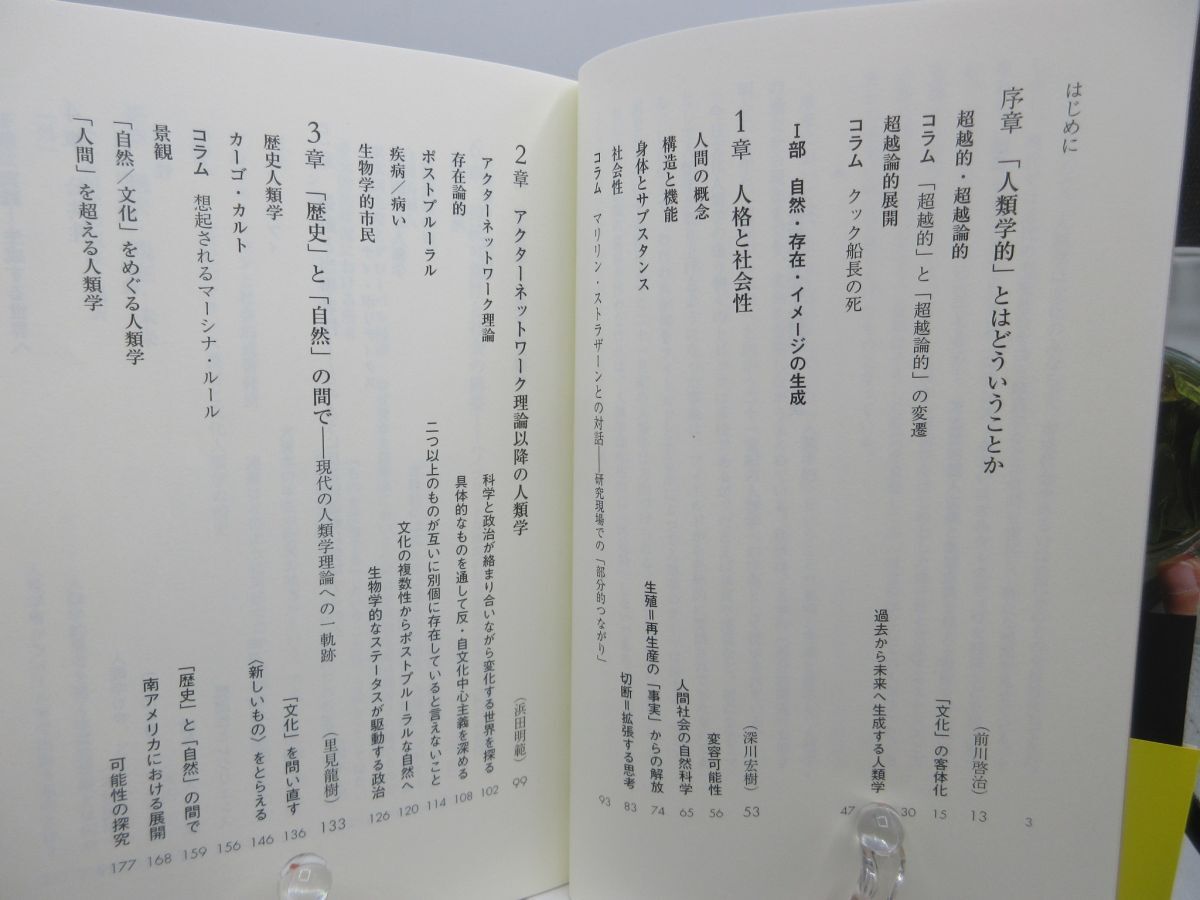 はじめに 3
序章 「人類学的」とはどういうことか (前川啓治) 13
超越的・超越論的 「文化」の客体化 15
コラム 「超越的」と「超越論的」の変遷 30
超越論的展開 過去から未来へ生成する人類学
コラム クック船長の死 47
Ⅰ部 自然・存在・イメージの生成
1章 人格と社会性 (深川宏樹) 53
人間の概念 変容可能性 56
構造と機能 人間社会の自然科学 65
身体とサブスタンス 生殖=再生産の「事実」からの解放 74
社会性 切断=拡張する思考 83
コラム マリリン・ストラザーンとの対話——研究現場での「部分的つながり」 93
2章 アクターネットワーク理論以降の人類学 (浜田明範) 99
アクターネットワーク理論 科学と政治が絡まり合いながら変化する世界を探る 102
存在論的 具体的なものを通して反・自文化中心主義を深める 108
ポストプルーラル 二つ以上のものが互いに別個に存在していると言えないこと 114
疾病/病い 文化の複数性からポストプルーラルな自然へ 120
生物学的市民 生物学的なステータスが駆動する政治 126
3章 「歴史」と「自然」の間で——現代の人類学理論への一軌跡 (里見龍樹) 133
歴史人類学 「文化」を問い直す 136
カーゴ・カルト 〈新しいもの〉をとらえる 146
コラム 想起されるマーシナ・ルール 156
景観 「歴史」と「自然」の間で 159
「自然/文化」をめぐる人類学 南アメリカにおける展開 168
「人間」を超える人類学 可能性の探究 177